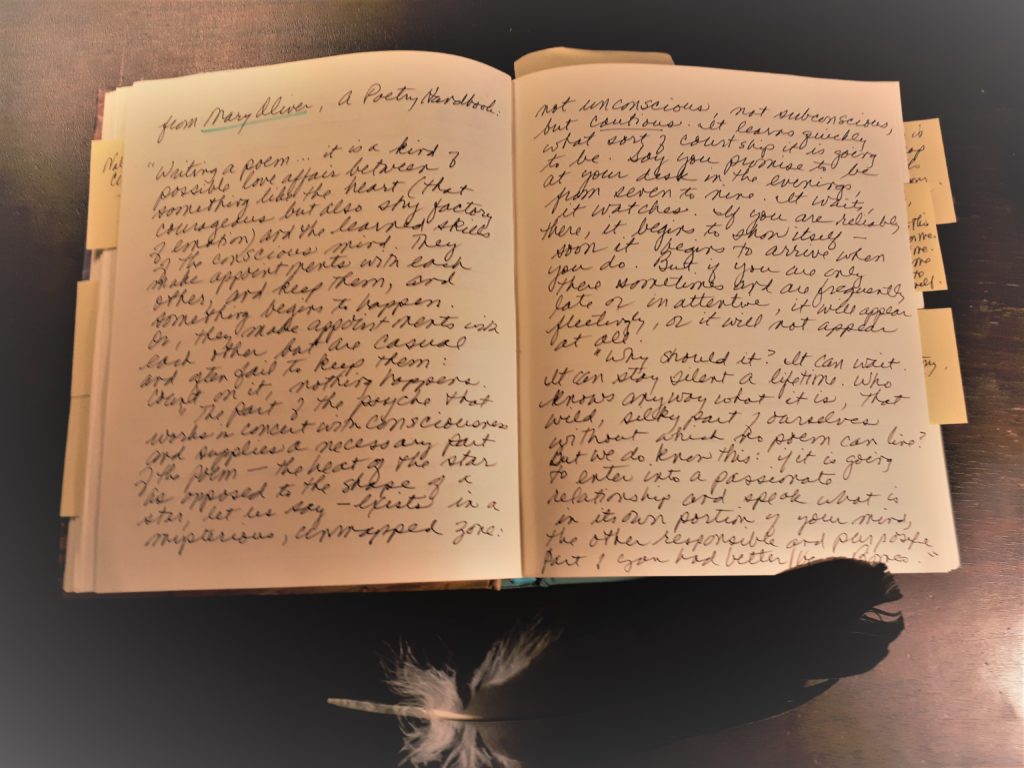 from Mary Oliver, A Poetry Handbook:
"Writing a poem... it is a kind of
possible love affair between
something like the heart (that
courageous but also shy factory
of emotion) and the learned skills
of the conscious mind. They
make appointments with each
other, and keep them, and
something begins to happen.
Or, they make appointments with
each other but are casual
and often fail to keep them:
count on it, nothing happens.
"The part of the psyche that
works in concert with consciousness
and supplies a necessary part
of the poem — the heat of the star
as opposed to the shape of a
star, let us say — exists in a
mysterious, unmapped zone:
not unconscious, not subconscious,
but cautious. It learns quickly
what sort of courtship it is going
to be. Say you promise to be
at your desk in the evenings,
from seven to nine. It waits,
it watches. If you are reliably
there, it begins to show itself —
soon it begins to arrive when
you do. But if you are only
there sometimes and are frequently
late or inattentive, it will appear
fleetingly, or it will not appear
at all.
"Why should it? It can wait.
It can stay silent a lifetime. Who
knows anyway what it is, that
wild, silky part of ourselves
without which no poem can live?
But we do know this: if it is going
to enter into a passionate
relationship and speak what is
in its own portion of your mind,
the other responsible and purposeful
part of you had better
is
this
me
to